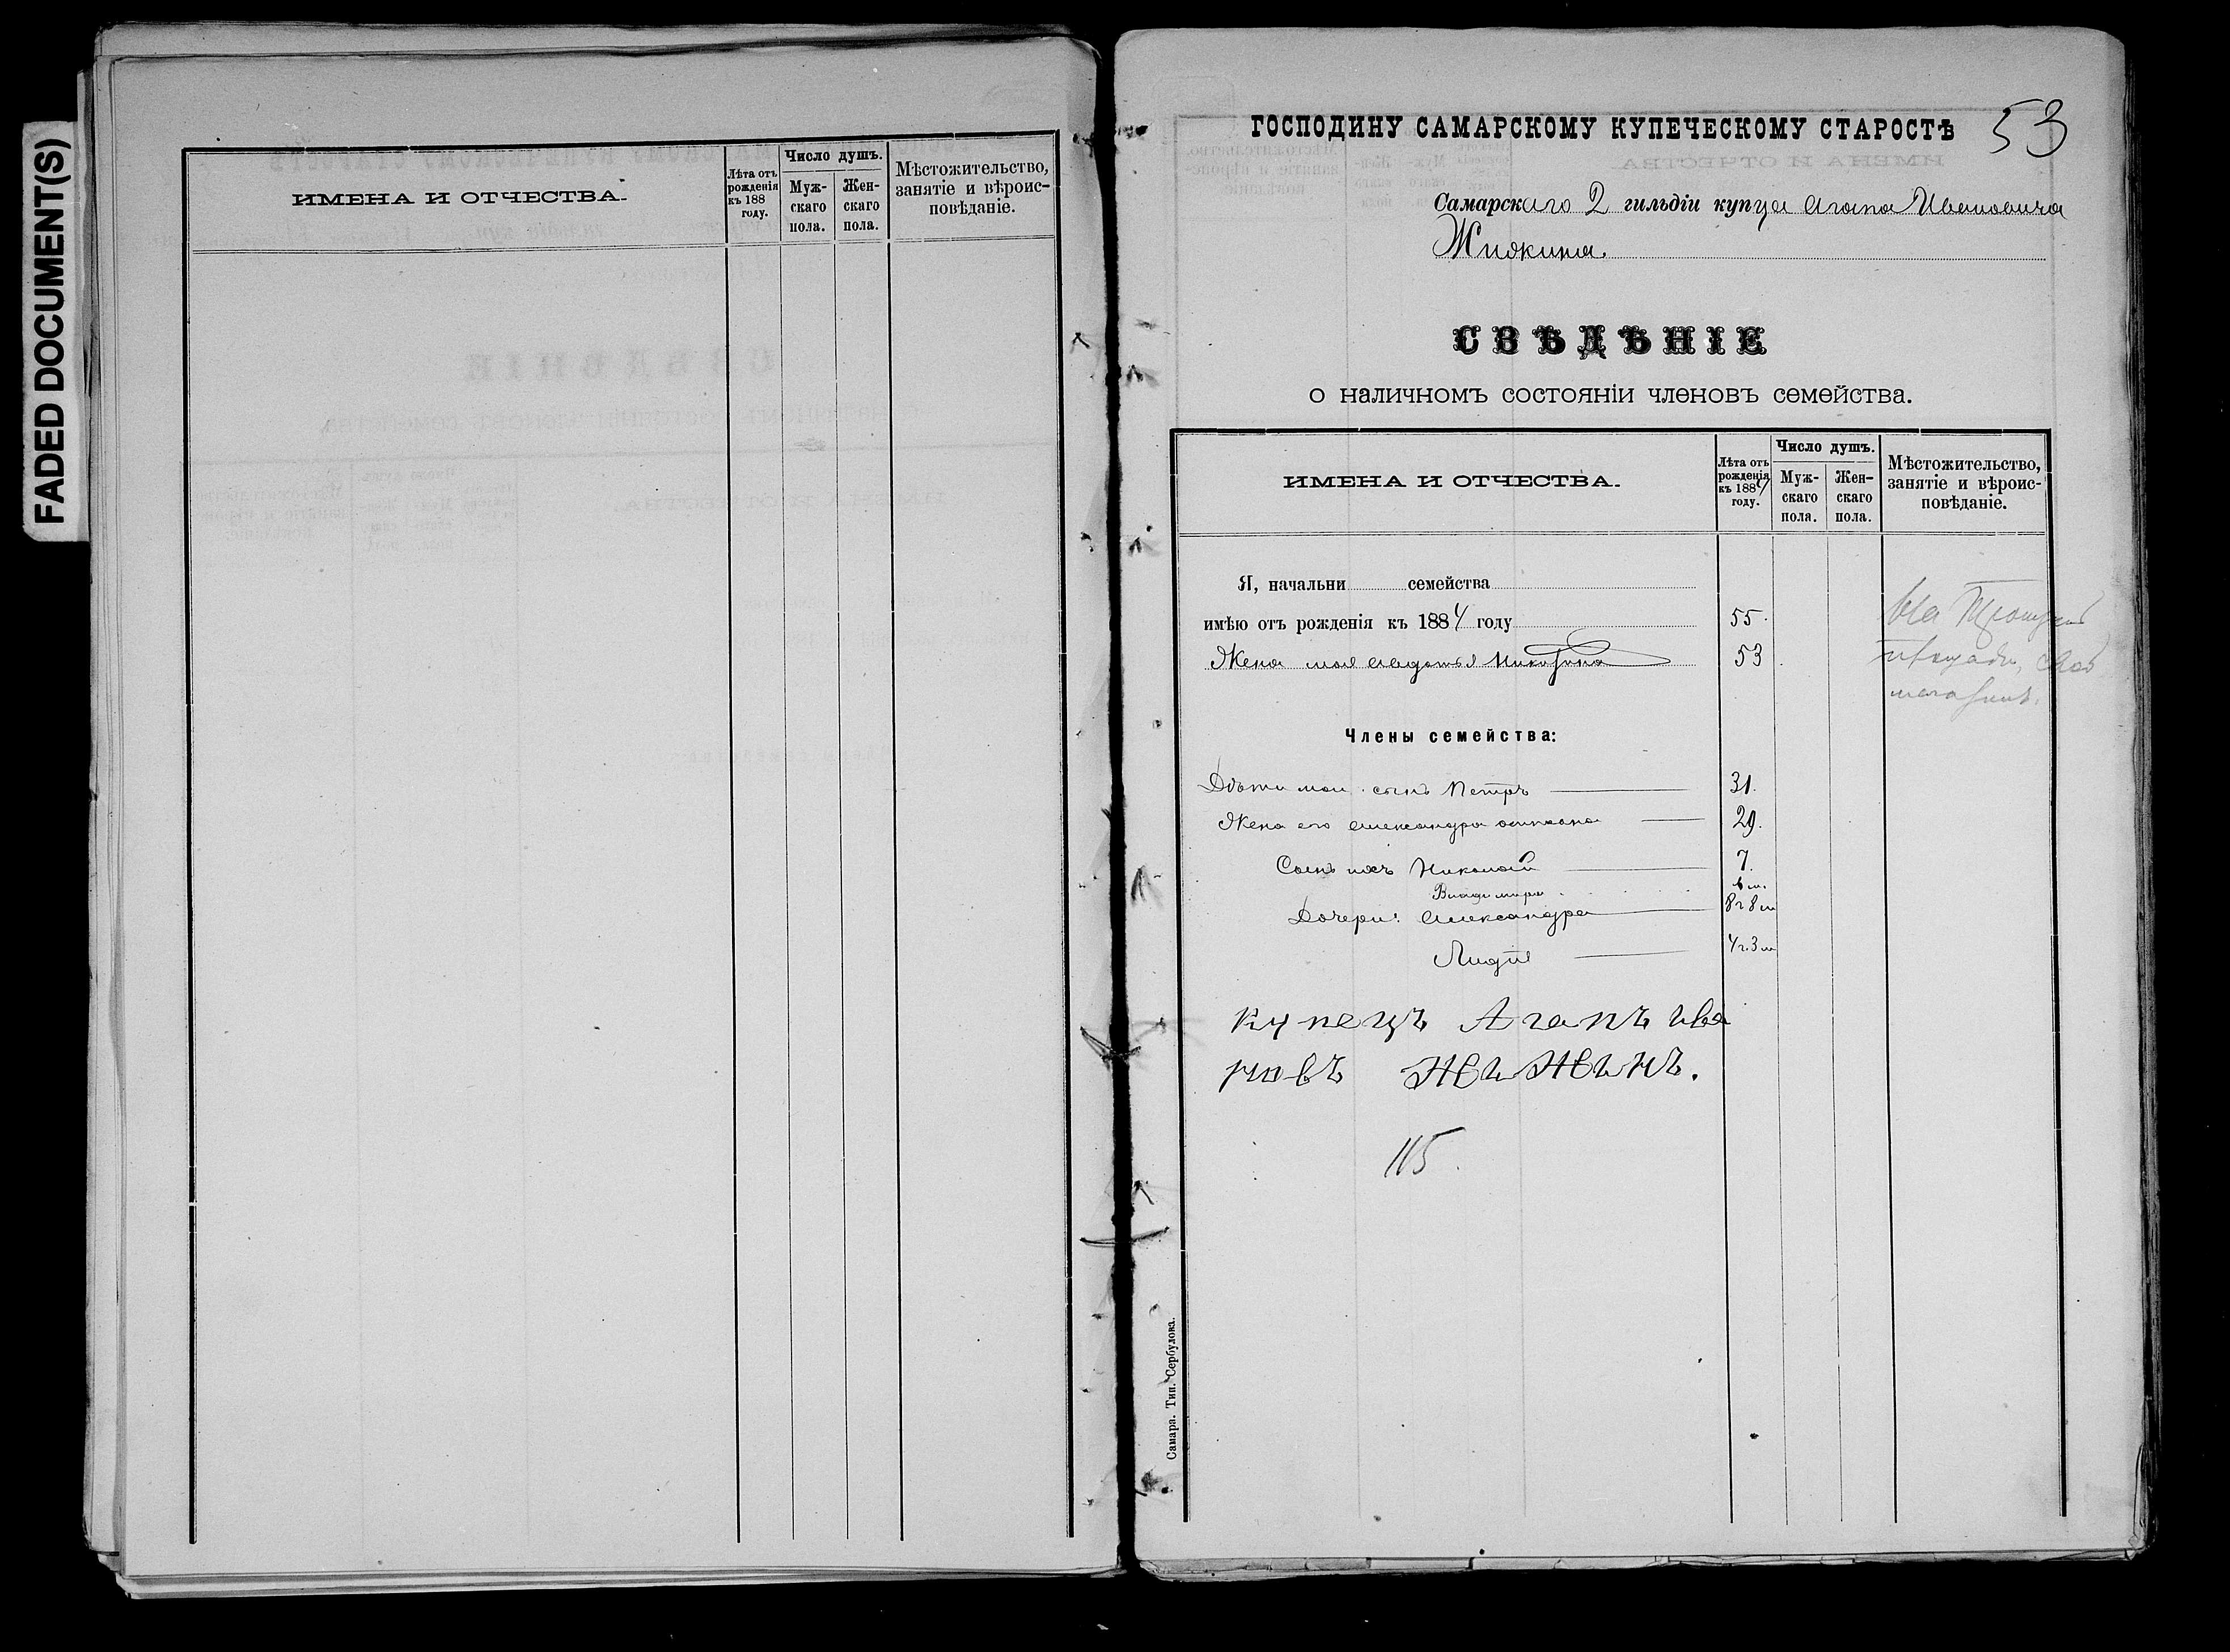 FADED DOCUMENT(S)
ИМЕНА И ОТЧЕСТВА.
Лѣта отъ рожденія къ 188 году.
Число душъ.
Мужскаго пола.
Женскаго пола.
Мѣстожительство, занятіе и вѣроисповѣданіе.
53
ГОСПОДИНУ САМАРСКОМУ КУПЕЧЕСКОМУ СТАРОСТѢ
Самарскаго 2 гильдіи купца Агапа Ивановича
СВѢДѢНІЕ
о наличномъ состояніи членовъ семейства.
ИМЕНА И ОТЧЕСТВА.
Лѣта отъ рожденія къ 1884 году.
Число душъ.
Мужскаго пола.
Женскаго пола.
Мѣстожительство, занятіе и вѣроисповѣданіе.
Я, начальни семейства
имѣю отъ рожденія къ 1884 году 55.
Жена моя 53
На Троицкой
площади, свой
магазинъ.
Члены семейства:
Дѣти мои: сынъ Петръ 31.
Жена его Александра Осиповна 29.
Сынъ ихъ Николай 7.
Владимиръ 6 м.
Дочери: Александра 8 г 8 м
Лидія 4 г. 3 м
купецъ Агапъ Ива
новъ
115.
Самара. Тип. Сербулова.